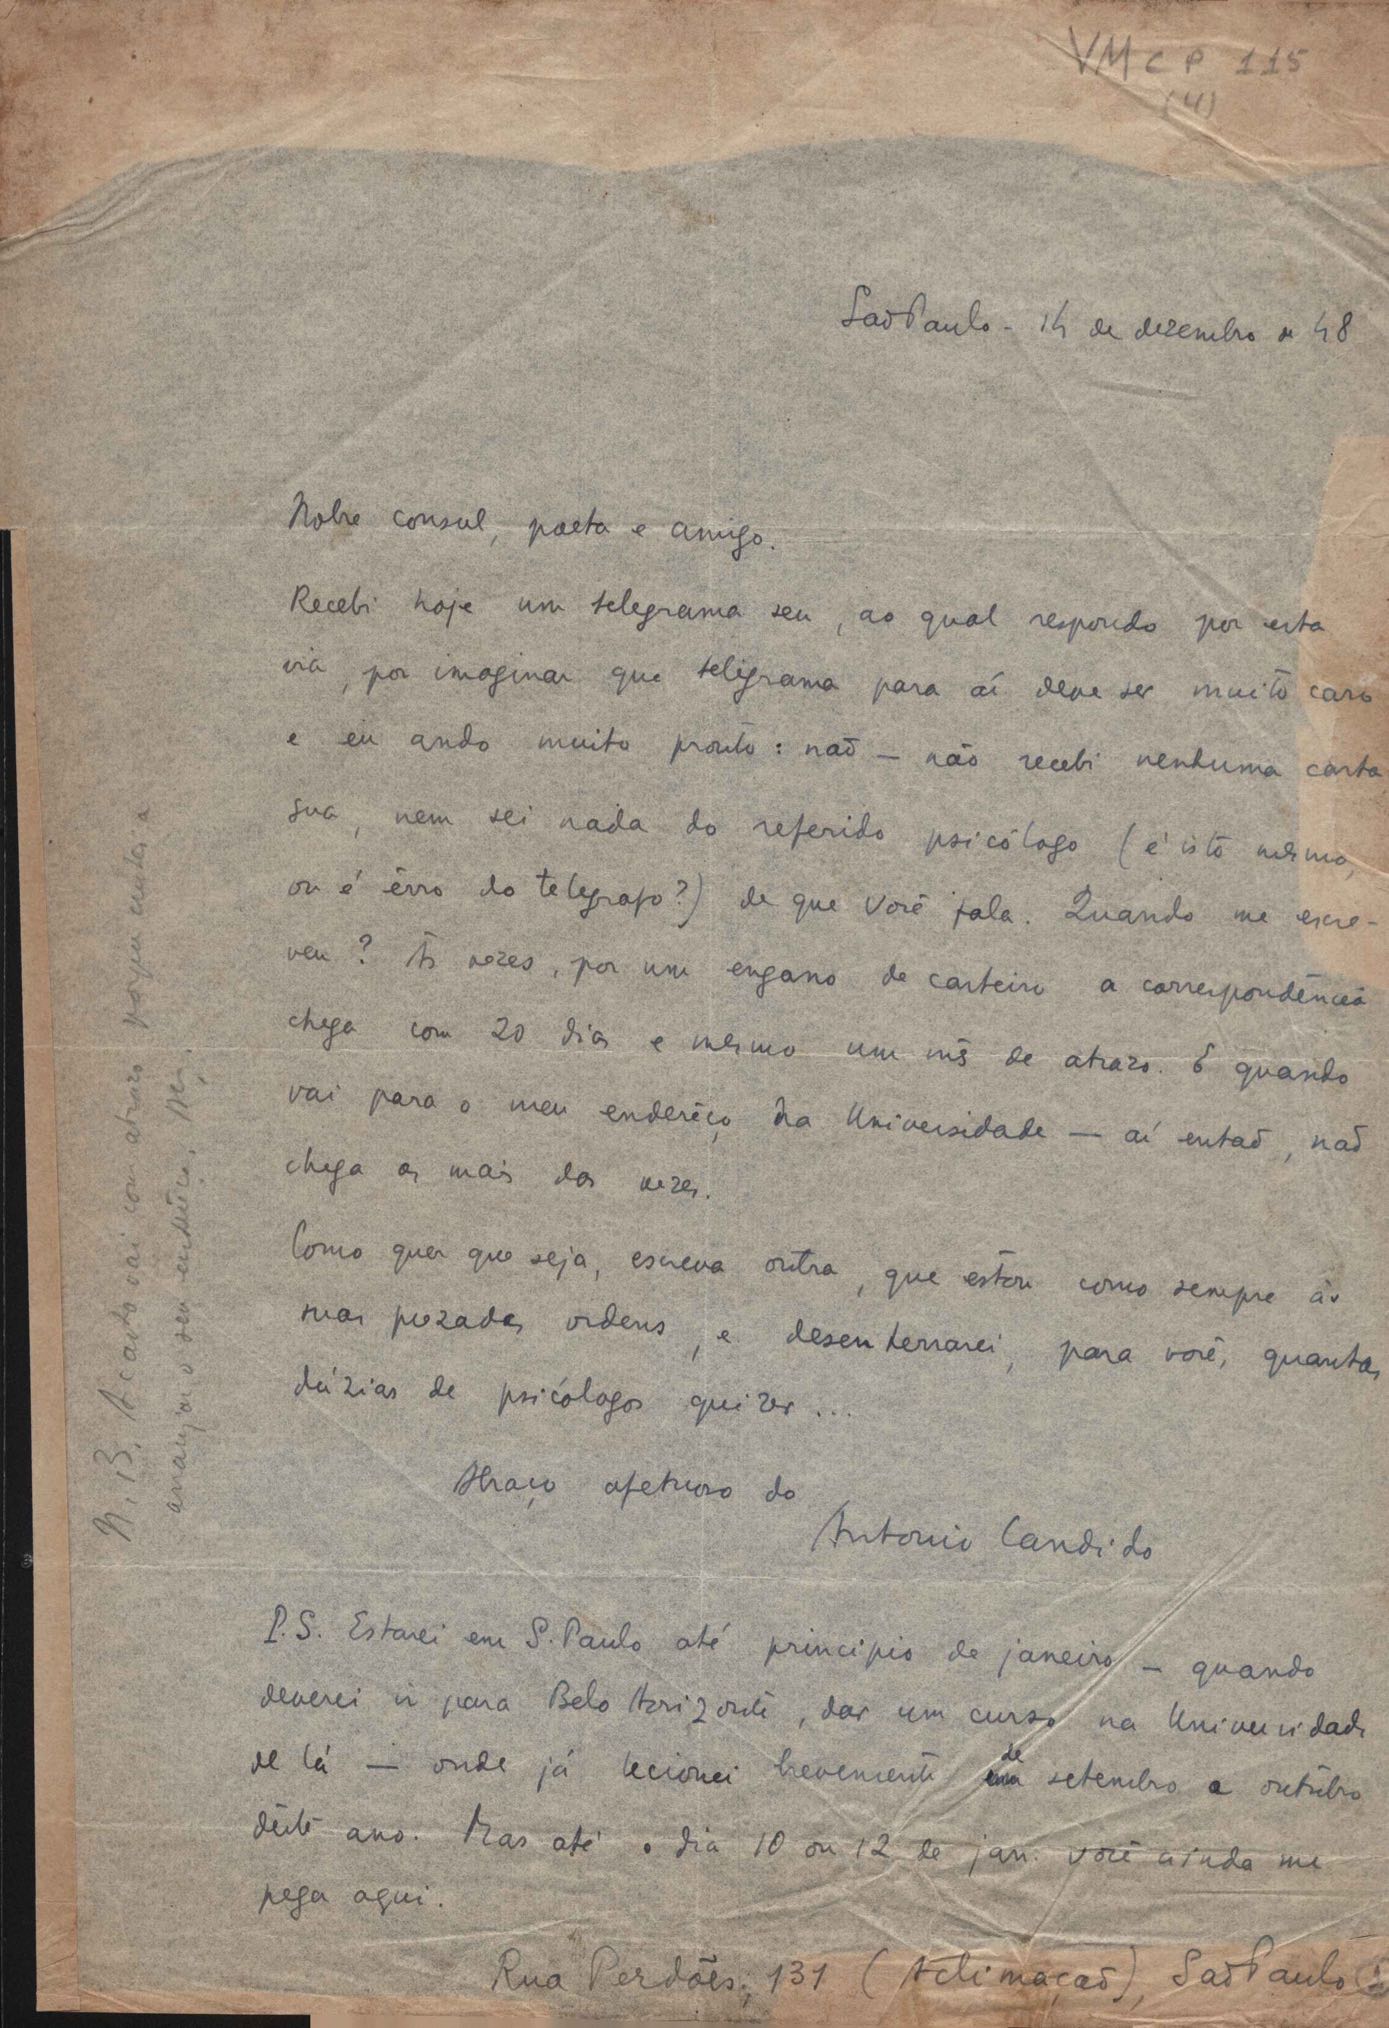 VMCP 115
(4)
São Paulo - 14 de dezembro de 48
Nobre consul, poeta e amigo.
Recebi hoje um telegrama seu, ao qual respondo por esta
via, por imaginar que teligrama para aí deve ser muito caro
e eu ando muito pronto: não — não recebi nenhuma carta
sua, nem sei nada do referido psicólogo (é isto mesmo,
ou é êrro do telegrafo?) de que Você fala. Quando me escre-
veu? Às vezes, por um engano de carteiro a correspondência
chega com 20 dias e mesmo um mês de atrazo. E quando
vai para o meu enderêço na Universidade — aí então, não
chega as mais das vezes.
Como quer que seja, escreva outra, que estou como sempre às
suas prezadas ordens, e desenterrarei, para você, quantas
dúzias de psicólogos quizer...
Abraço afetuoso do
Antonio Candido
P.S. Estarei em S. Paulo até principio de janeiro — quando
deverei ir para Belo Horizonte, dar um curso na Universidade
de lá — onde já lecionei brevemente de setembro a outubro
dêste ano. Mas até o dia 10 ou 12 de jan. você ainda me
pega aqui.
Rua Perdões, 131 (Aclimação), São Paulo
N.B. A carta vai com atrazo porque custei a
arranjar o seu enderêço.